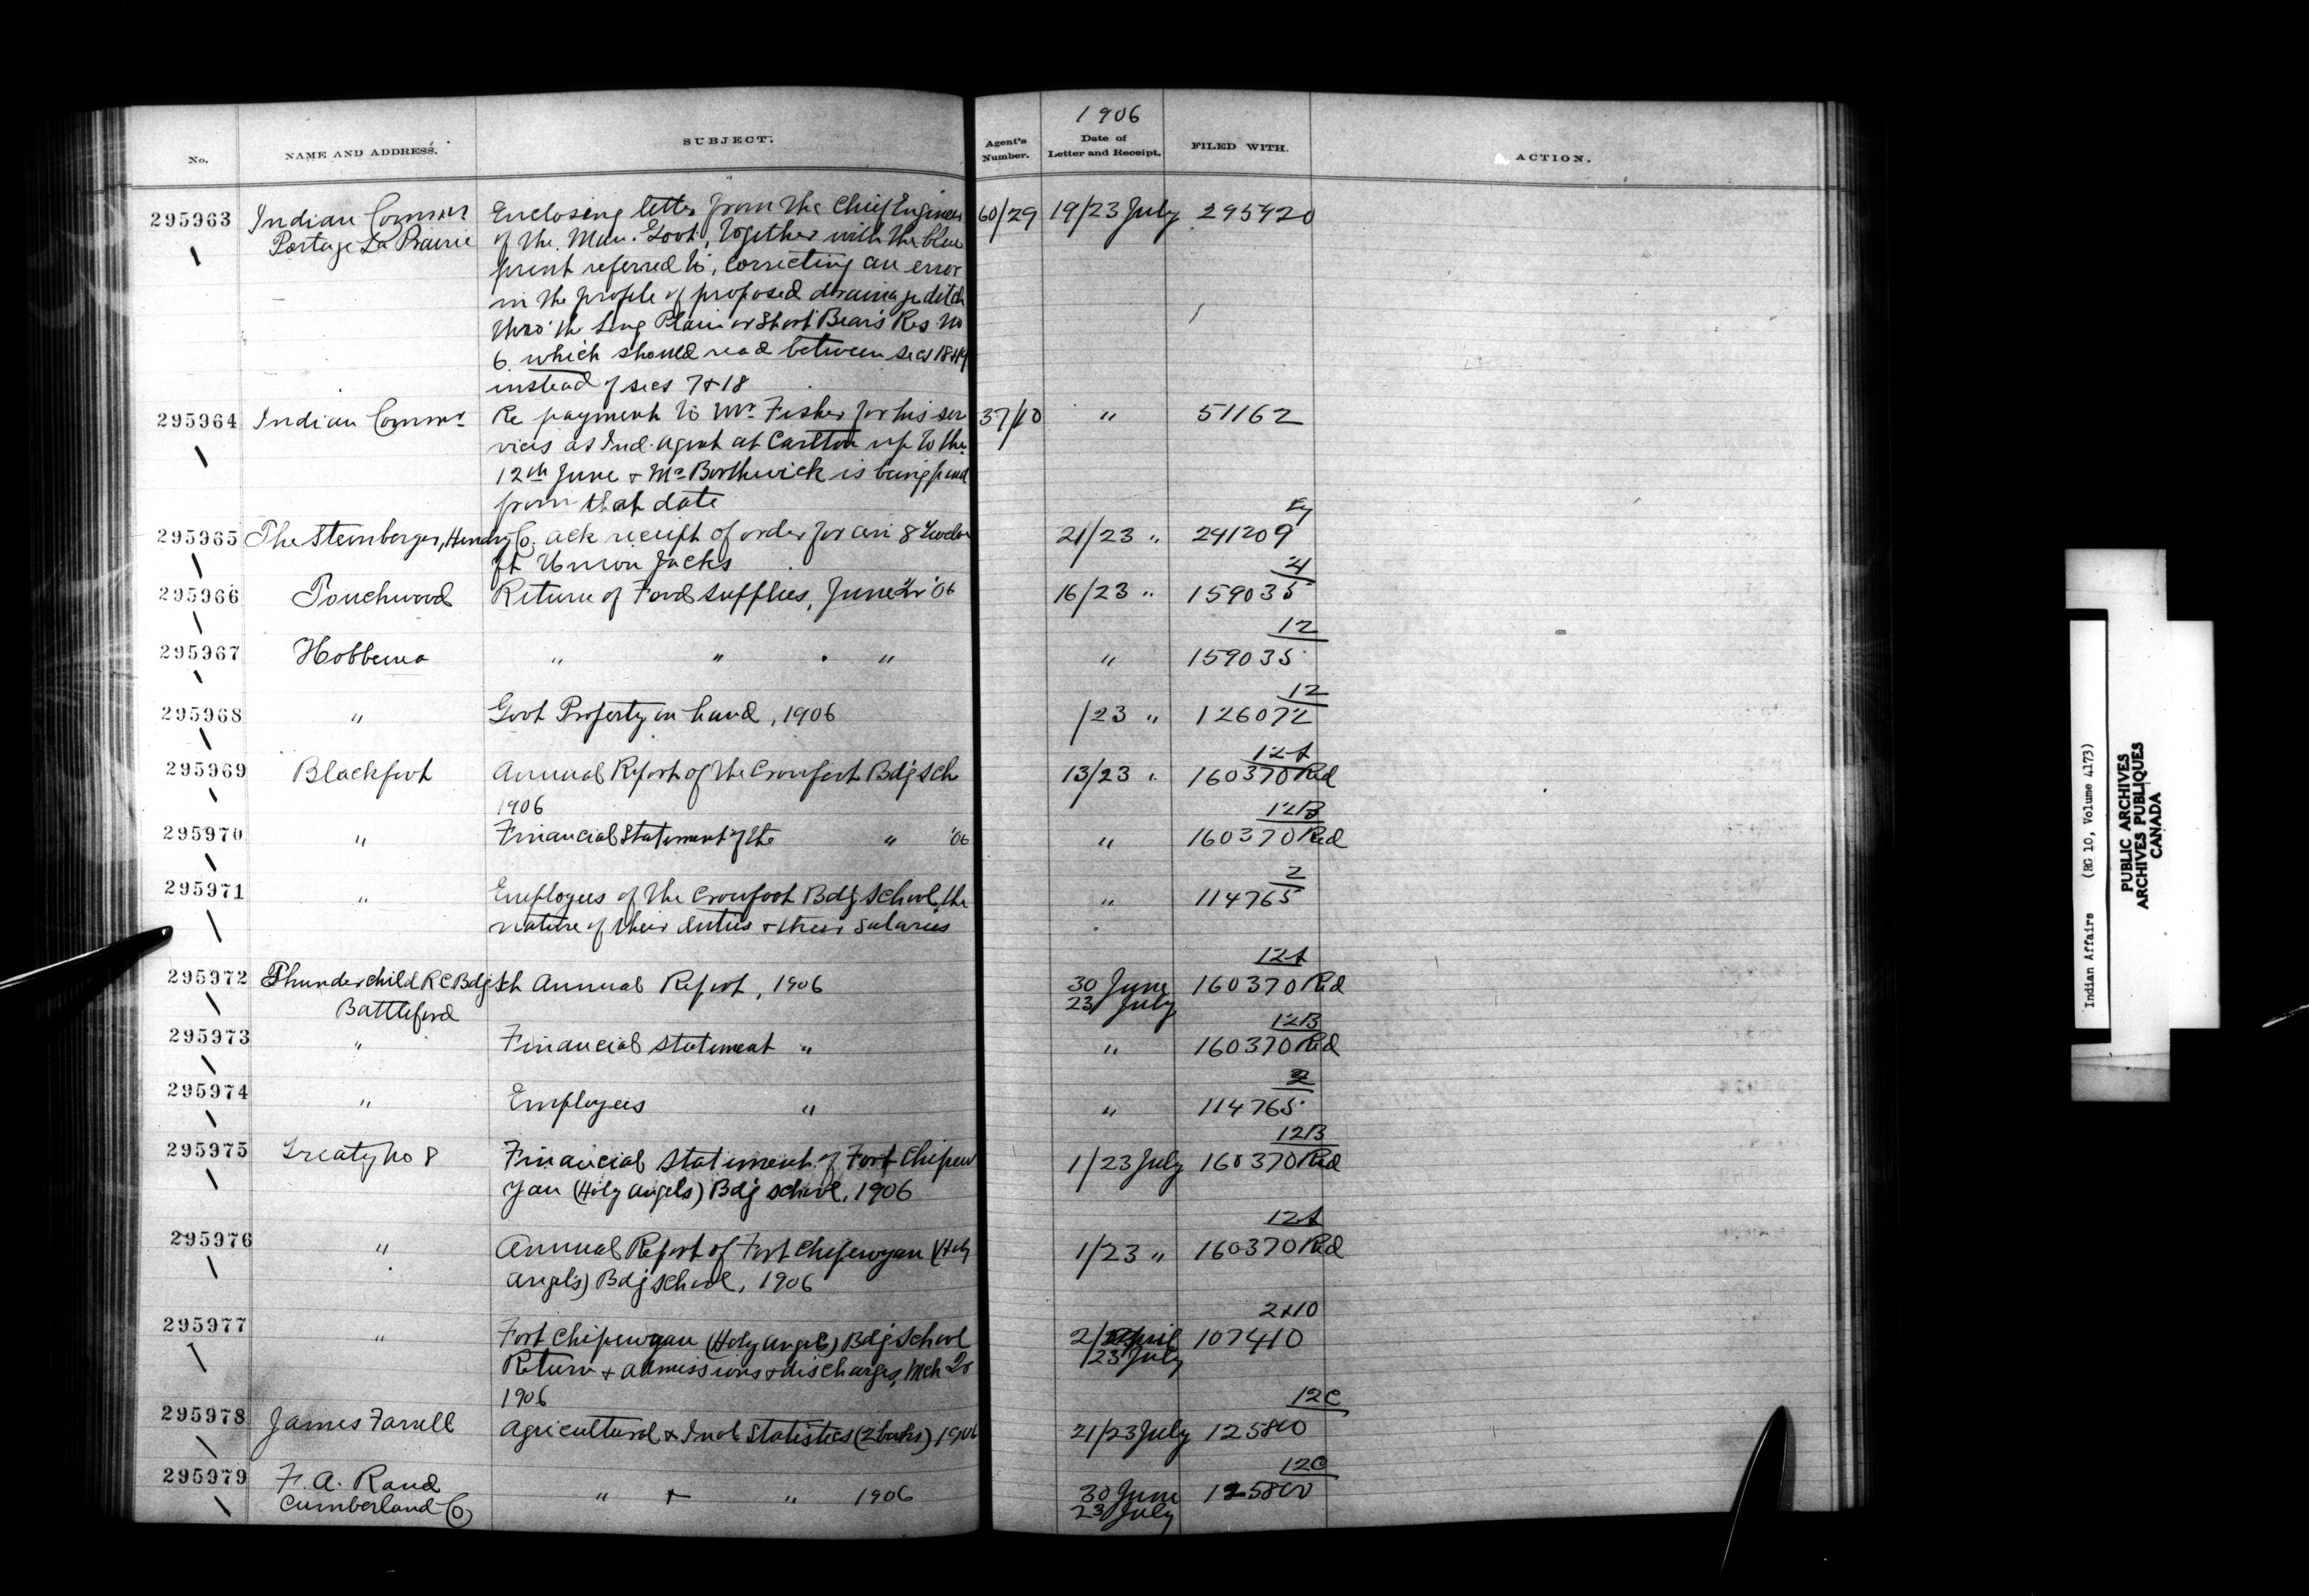 1906
No. NAME AND ADDRESS. SUBJECT. Agent's Number. Date of Letter and Receipt. FILED WITH. ACTION.
295963 Indian Commr Enclosing letter from the Chief Engineer 60/29 19/23 July 295920
Portage La Prairie of the Man. Govt, together with the blue
print referred to, correcting an error
in the profile of proposed drainage ditch
thro' the Long Plain or Short Bear's Res No
6 which should read between secs 18+19
instead of secs 7+18
295964 Indian Commr Re payment to Mr Fisher for his ser 37/10 " 51162
vices as Ind. agent at Carlton up to the
12th June + Mr Borthwick is being paid
from that date
295965 The Steinberger, Hendry Co. ack receipt of order for 8 Twelve 21/23 " 241209
ft Union Jacks
4
295966 Touchwood Return of Food supplies, June Qr '06 16/23 " 159035
12
295967 Hobbema " " " " 159035
12
295968 " Govt Property in hand, 1906 /23 " 126072
12A
295969 Blackfoot Annual Report of the Crowfoot Bdg Sch 13/23 " 160370 Red
1906
12B
295970 " Financial Statement of the " '06 " 160370 Red
2
295971 " Employees of the Crowfoot Bdg School, the " 114765
nature of their duties + their salaries
12A
295972 Thunderchild RC Bdg Sch Annual Report, 1906 30 June 160370 Red
Battleford 23 July
12B
295973 " Financial statement " " 160370 Red
2
295974 " Employees " " 114765
12B
295975 Treaty No 8 Financial statement of Fort Chipew 1/23 July 160370 Red
yan (Holy Angels) Bdg School, 1906
12A
295976 " Annual Report of Fort Chipewyan (Holy 1/23 " 160370 Red
Angels) Bdg School, 1906
2+10
295977 " Fort Chipewyan (Holy Angels) Bdg School 2/April 107410
Return + admissions + discharges, Mch Qr 23 July
1906
12C
295978 James Farrell Agricultural + Indl Statistics (2 books) 1906 21/23 July 125800
12C
295979 F. A. Rand " + " 1906 30 June 125800
Cumberland Co 23 July
Indian Affairs (RG 10, Volume 4173)
PUBLIC ARCHIVES
ARCHIVES PUBLIQUES
CANADA